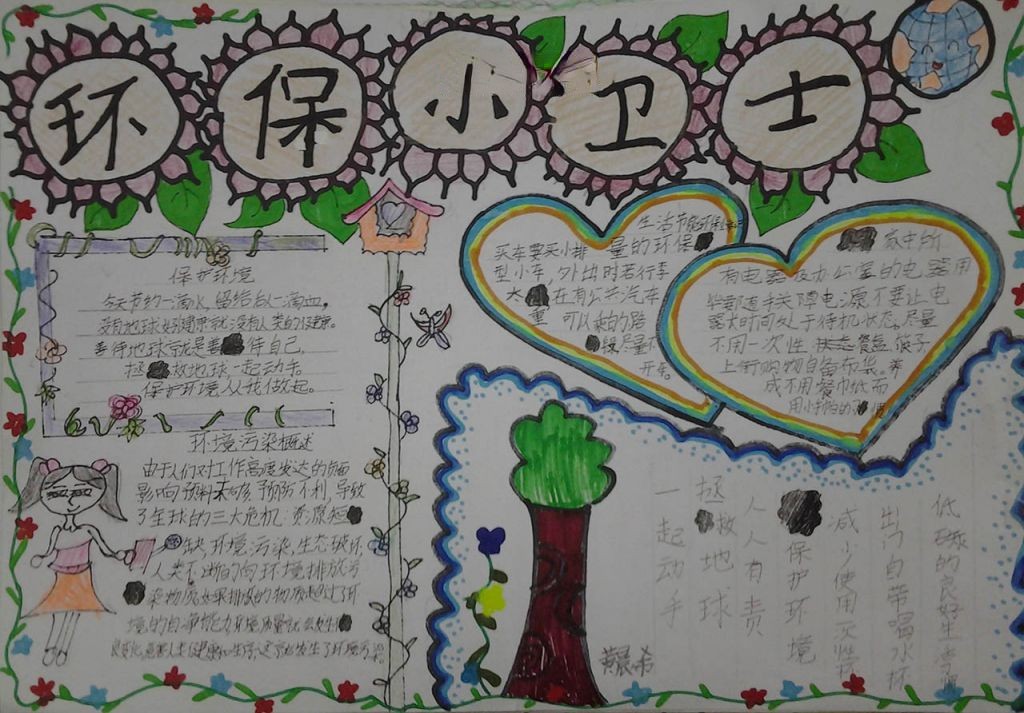 环保小卫士
保护环境
今天节约一滴水,留给后人一滴血。
没有地球的健康就没有人类的健康。
善待地球就是善待自己。
拯救地球一起动手
保护环境从我做起。
环境污染概述
由于人们对工作高度发达的
影响预料不够,预防不利,导致
了全球的三大危机:资源短
缺,环境污染,生态破坏,
人类不断的向环境排放污
染物质如果排放的物质超过了环
境的自净能力环境质量就会发生
生活节能环保
买车要买小排量的环保
型小车,外出时若行车
在有公共汽车
可以乘的路
段尽量不
开车。
家中所
有电器及办公室的电器用
毕都随手关闭电源不要让电
器长时间处于待机状态。尽量
不用一次性餐盒筷子
上街购物自备布袋。
不用餐巾纸而
低碳的良好生
出门自带喝水杯
减少使用
保护环境
人人有责
拯救地球
一起动手